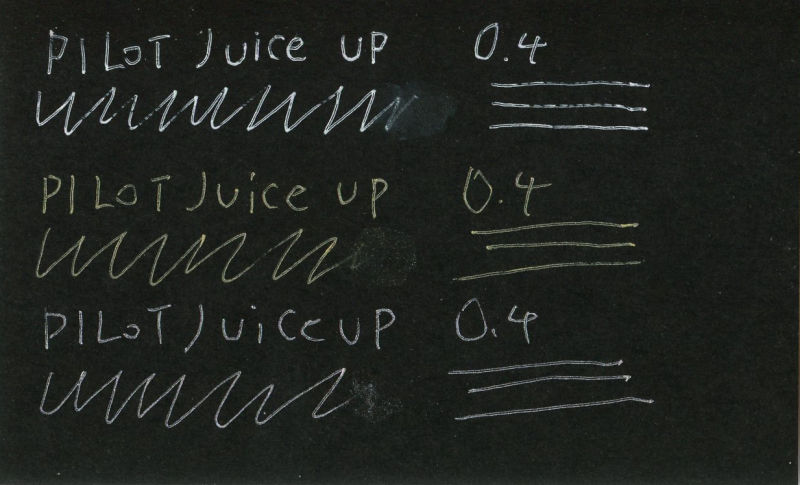 PILOT Juice UP 0.4
PILOT Juice UP 0.4
PILOT Juice UP 0.4